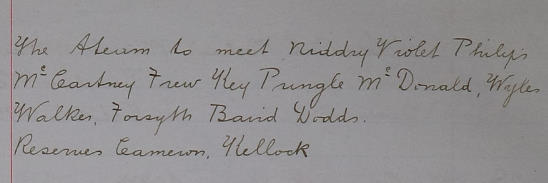 The Ateam to meet Niddry Violet Philips
McCartney Frew Key Pringle McDonald, Wyles
Walker, Forsyth Baird Dodds.
Reserves Cameron, Kellock